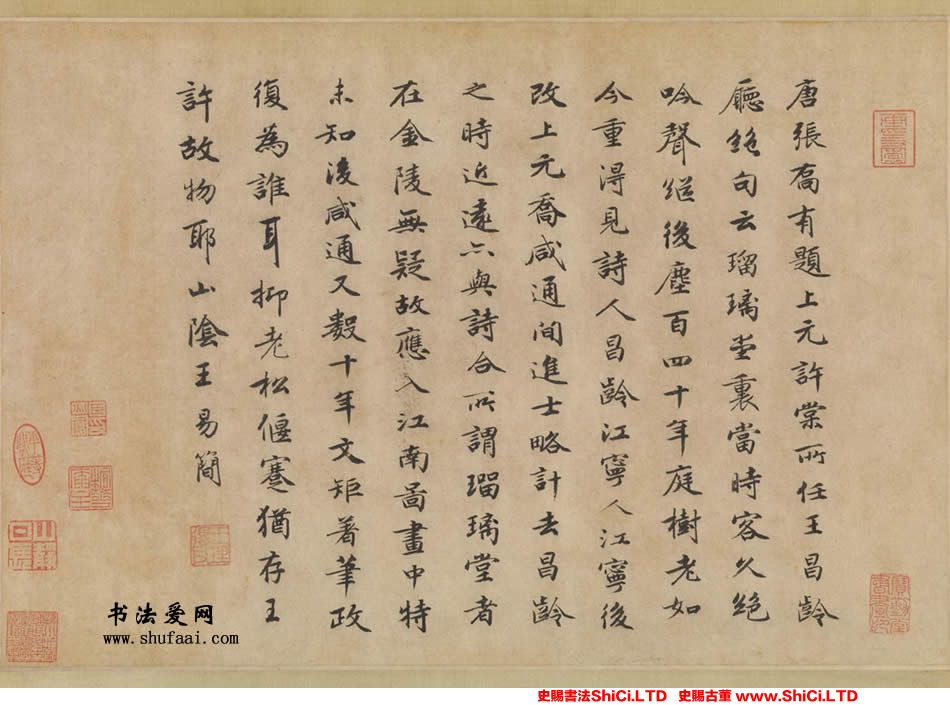 唐張喬有題上元許棠所任王昌齡
廳絶句云瑠璃堂裏當時客久絶
吟聲繼後塵百四十年庭樹老如
今重得見詩人昌齡江寧人江寧後
改上元喬咸通間進士略計去昌齡
之時近遠亦與詩合所謂瑠璃堂者
在金陵無疑故應入江南圖畫中特
未知後咸通又數十年文矩著筆政
復為誰耳抑老松偃蹇猶存王
許故物耶山陰王易簡
书法爱网
www.shufaai.com
史賜書法ShiCi.LTD 史賜古董 www.ShiCi.LTD